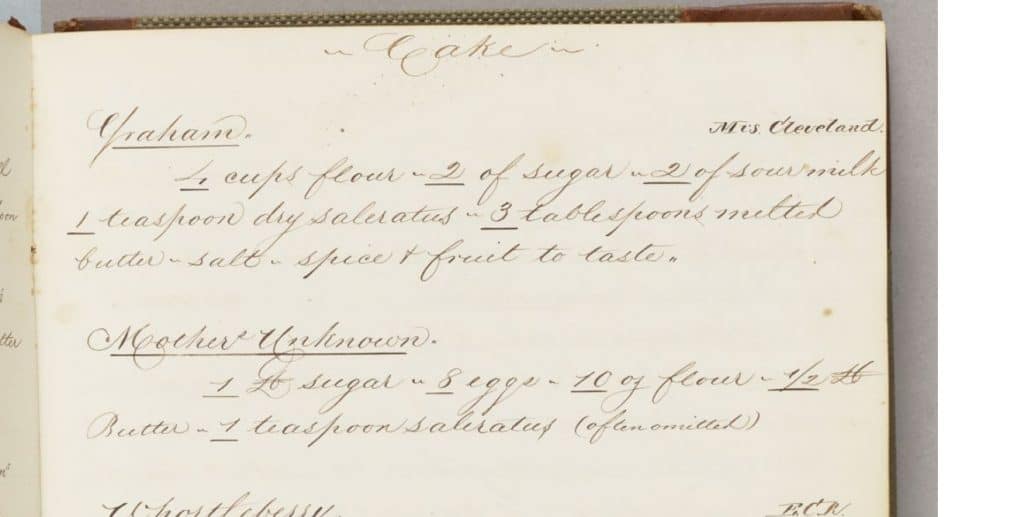 ~ Cake ~
Graham. Mrs. Cleveland.
4 cups flour ~ 2 of sugar ~ 2 of sour milk
1 teaspoon dry saleratus ~ 3 tablespoons melted
butter ~ salt ~ spice & fruit to taste.
Mother's Unknown.
1 ℔ sugar ~ 8 eggs ~ 10 oz flour ~ 1/2 ℔
Butter ~ 1 teaspoon saleratus (often omitted)
Whortleberry. E.C.R.